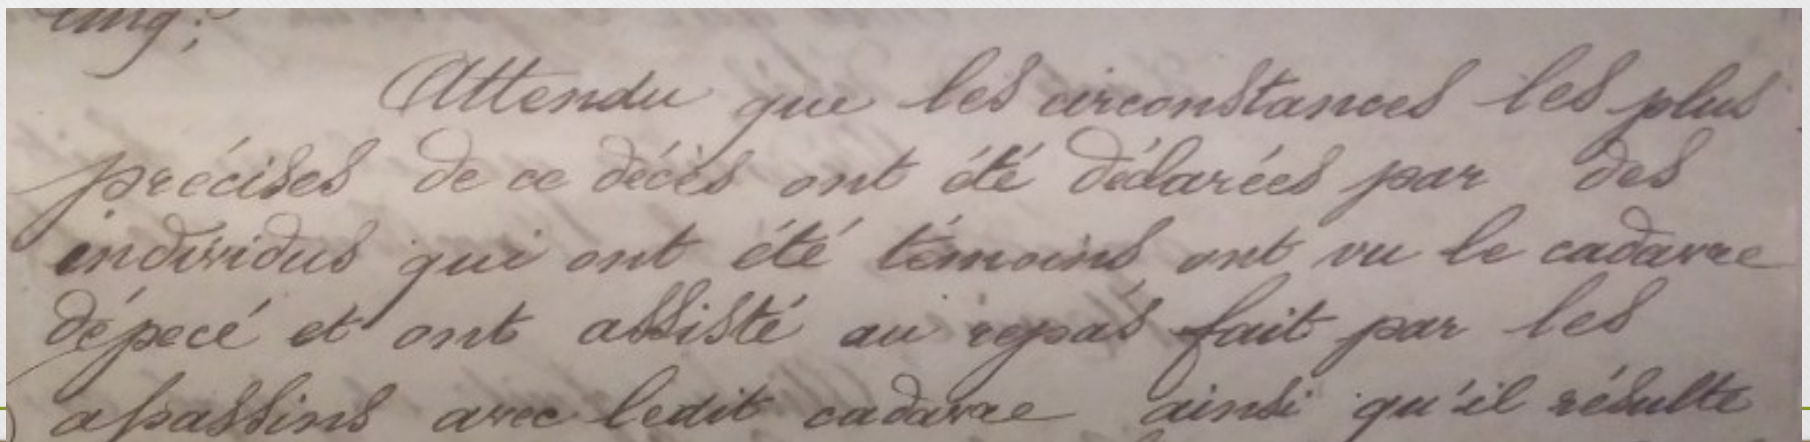 cinq;
Attendu que les circonstances les plus
précises de ce décès ont été déclarées par des
individus qui ont été témoins, ont vu le cadavre
dépecé et ont assisté au repas fait par les
assassins avec ledit cadavre ainsi qu'il résulte